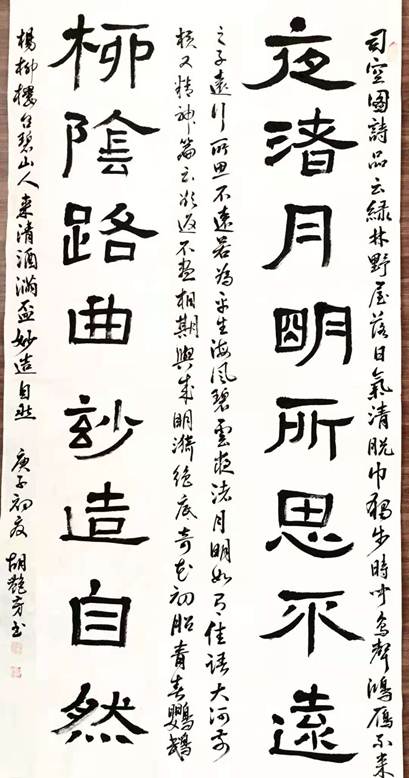 司空圖詩品云綠林野屋落日氣清脫巾獨步時聞鳥聲鴻雁不來
夜渚月明所思不遠
之子遠行所思不遠若為平生海風碧雲夜渚月明如有佳語大河前
橫又精神篇云欲返不盡相期與來明漪絕底奇花初胎青春鸚鵡
柳陰路曲玅造自然
楊柳樓台碧山人來清酒滿盃妙造自然 庚子初夏 胡艷芳书